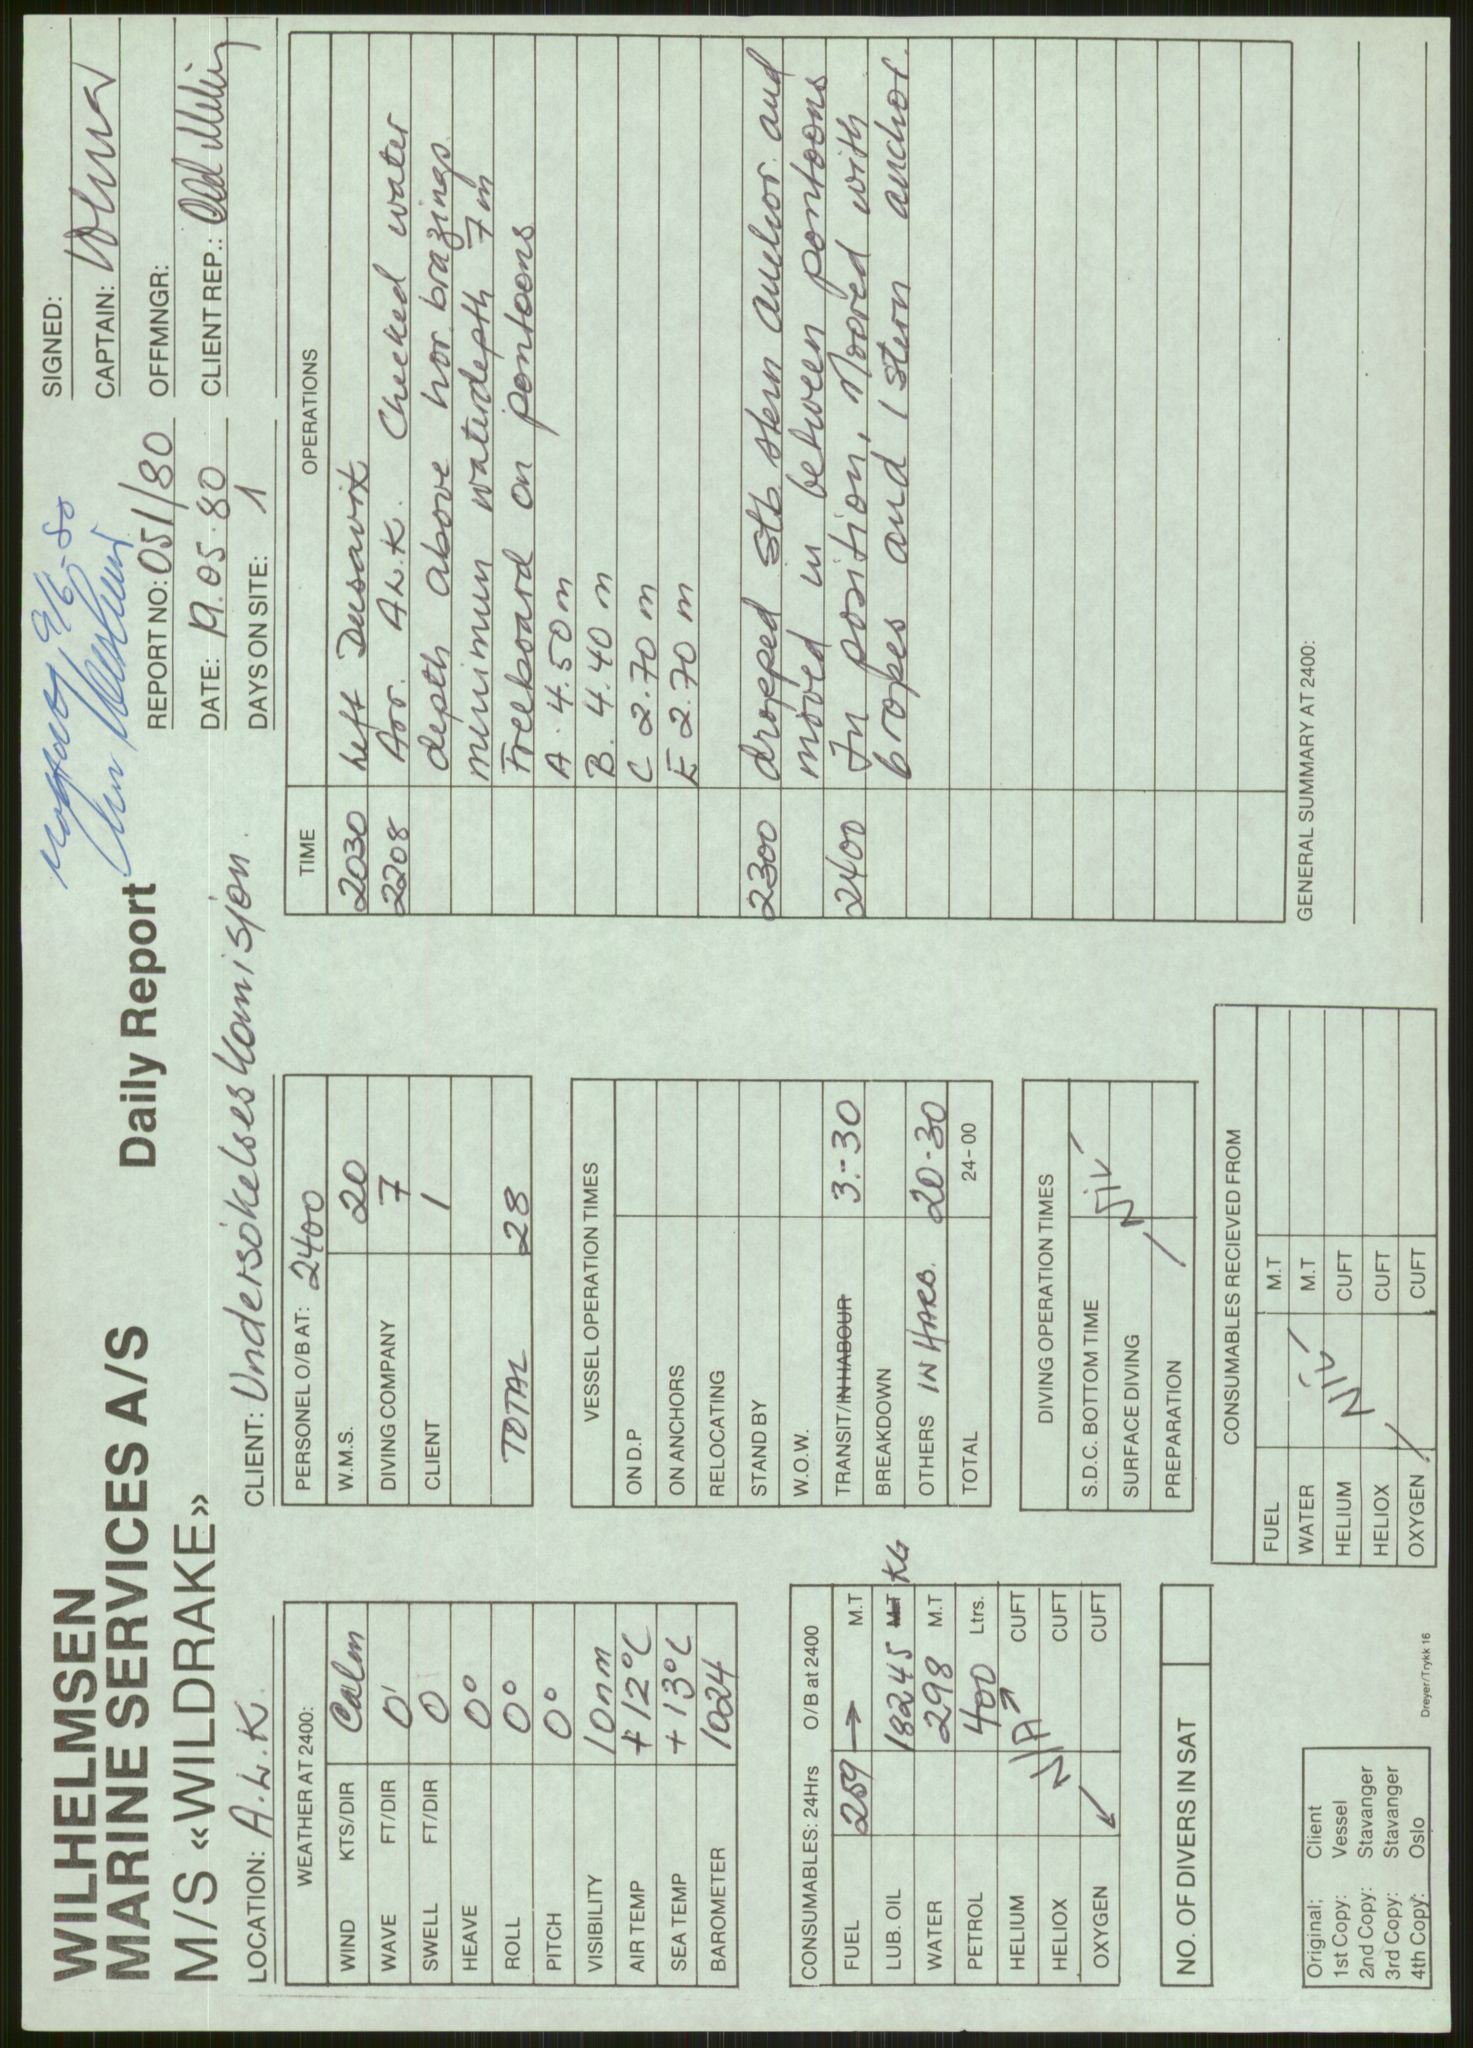 WILHELMSEN
MARINE SERVICES A/S
M/S «WILDRAKE»
Daily Report
9/6-80
REPORT NO: 051/80
DATE: 19.05.80
DAYS ON SITE: 1
SIGNED:
CAPTAIN:
OFFMNGR:
CLIENT REP.:
LOCATION: A.L.K.
CLIENT: UndersökelsesKomisjon
WEATHER AT 2400:
WIND KTS/DIR Calm
WAVE FT/DIR 0'
SWELL FT/DIR 0
HEAVE 0°
ROLL 0°
PITCH 0°
VISIBILITY 10nm
AIR TEMP +12°C
SEA TEMP +13°C
BAROMETER 1024
CONSUMABLES: 24Hrs O/B at 2400
FUEL 259 → M.T
LUB. OIL 18245 M.T KG
WATER 298 M.T
PETROL 400 Ltrs.
HELIUM CUFT
HELIOX N/A CUFT
OXYGEN CUFT
NO. OF DIVERS IN SAT
Original: Client
1st Copy: Vessel
2nd Copy: Stavanger
3rd Copy: Stavanger
4th Copy: Oslo
Dreyer/Trykk 16
PERSONEL O/B AT: 2400
W.M.S. 20
DIVING COMPANY 7
CLIENT 1
TOTAL 28
VESSEL OPERATION TIMES
ON D.P
ON ANCHORS
RELOCATING
STAND BY
W.O.W.
TRANSIT/IN HABOUR 3.-30
BREAKDOWN
OTHERS IN HARB. 20-30
TOTAL 24-00
DIVING OPERATION TIMES
S.D.C. BOTTOM TIME
SURFACE DIVING
PREPARATION
CONSUMABLES RECIEVED FROM
FUEL M.T
WATER M.T
HELIUM CUFT
HELIOX CUFT
OXYGEN CUFT
TIME OPERATIONS
2030 Left Dusavik
2208 Arr. A.L.K. Checked water
depth above hor. brazings
minimun waterdepth 7m
Freeboard on pontoons
A. 4.50 m
B. 4.40 m
C 2.70 m
E 2.70 m
2300 dropped stb. stern anchor and
moved in between pontoons
2400 In position, Moored with
6 ropes and 1 stern anchor.
GENERAL SUMMARY AT 2400: